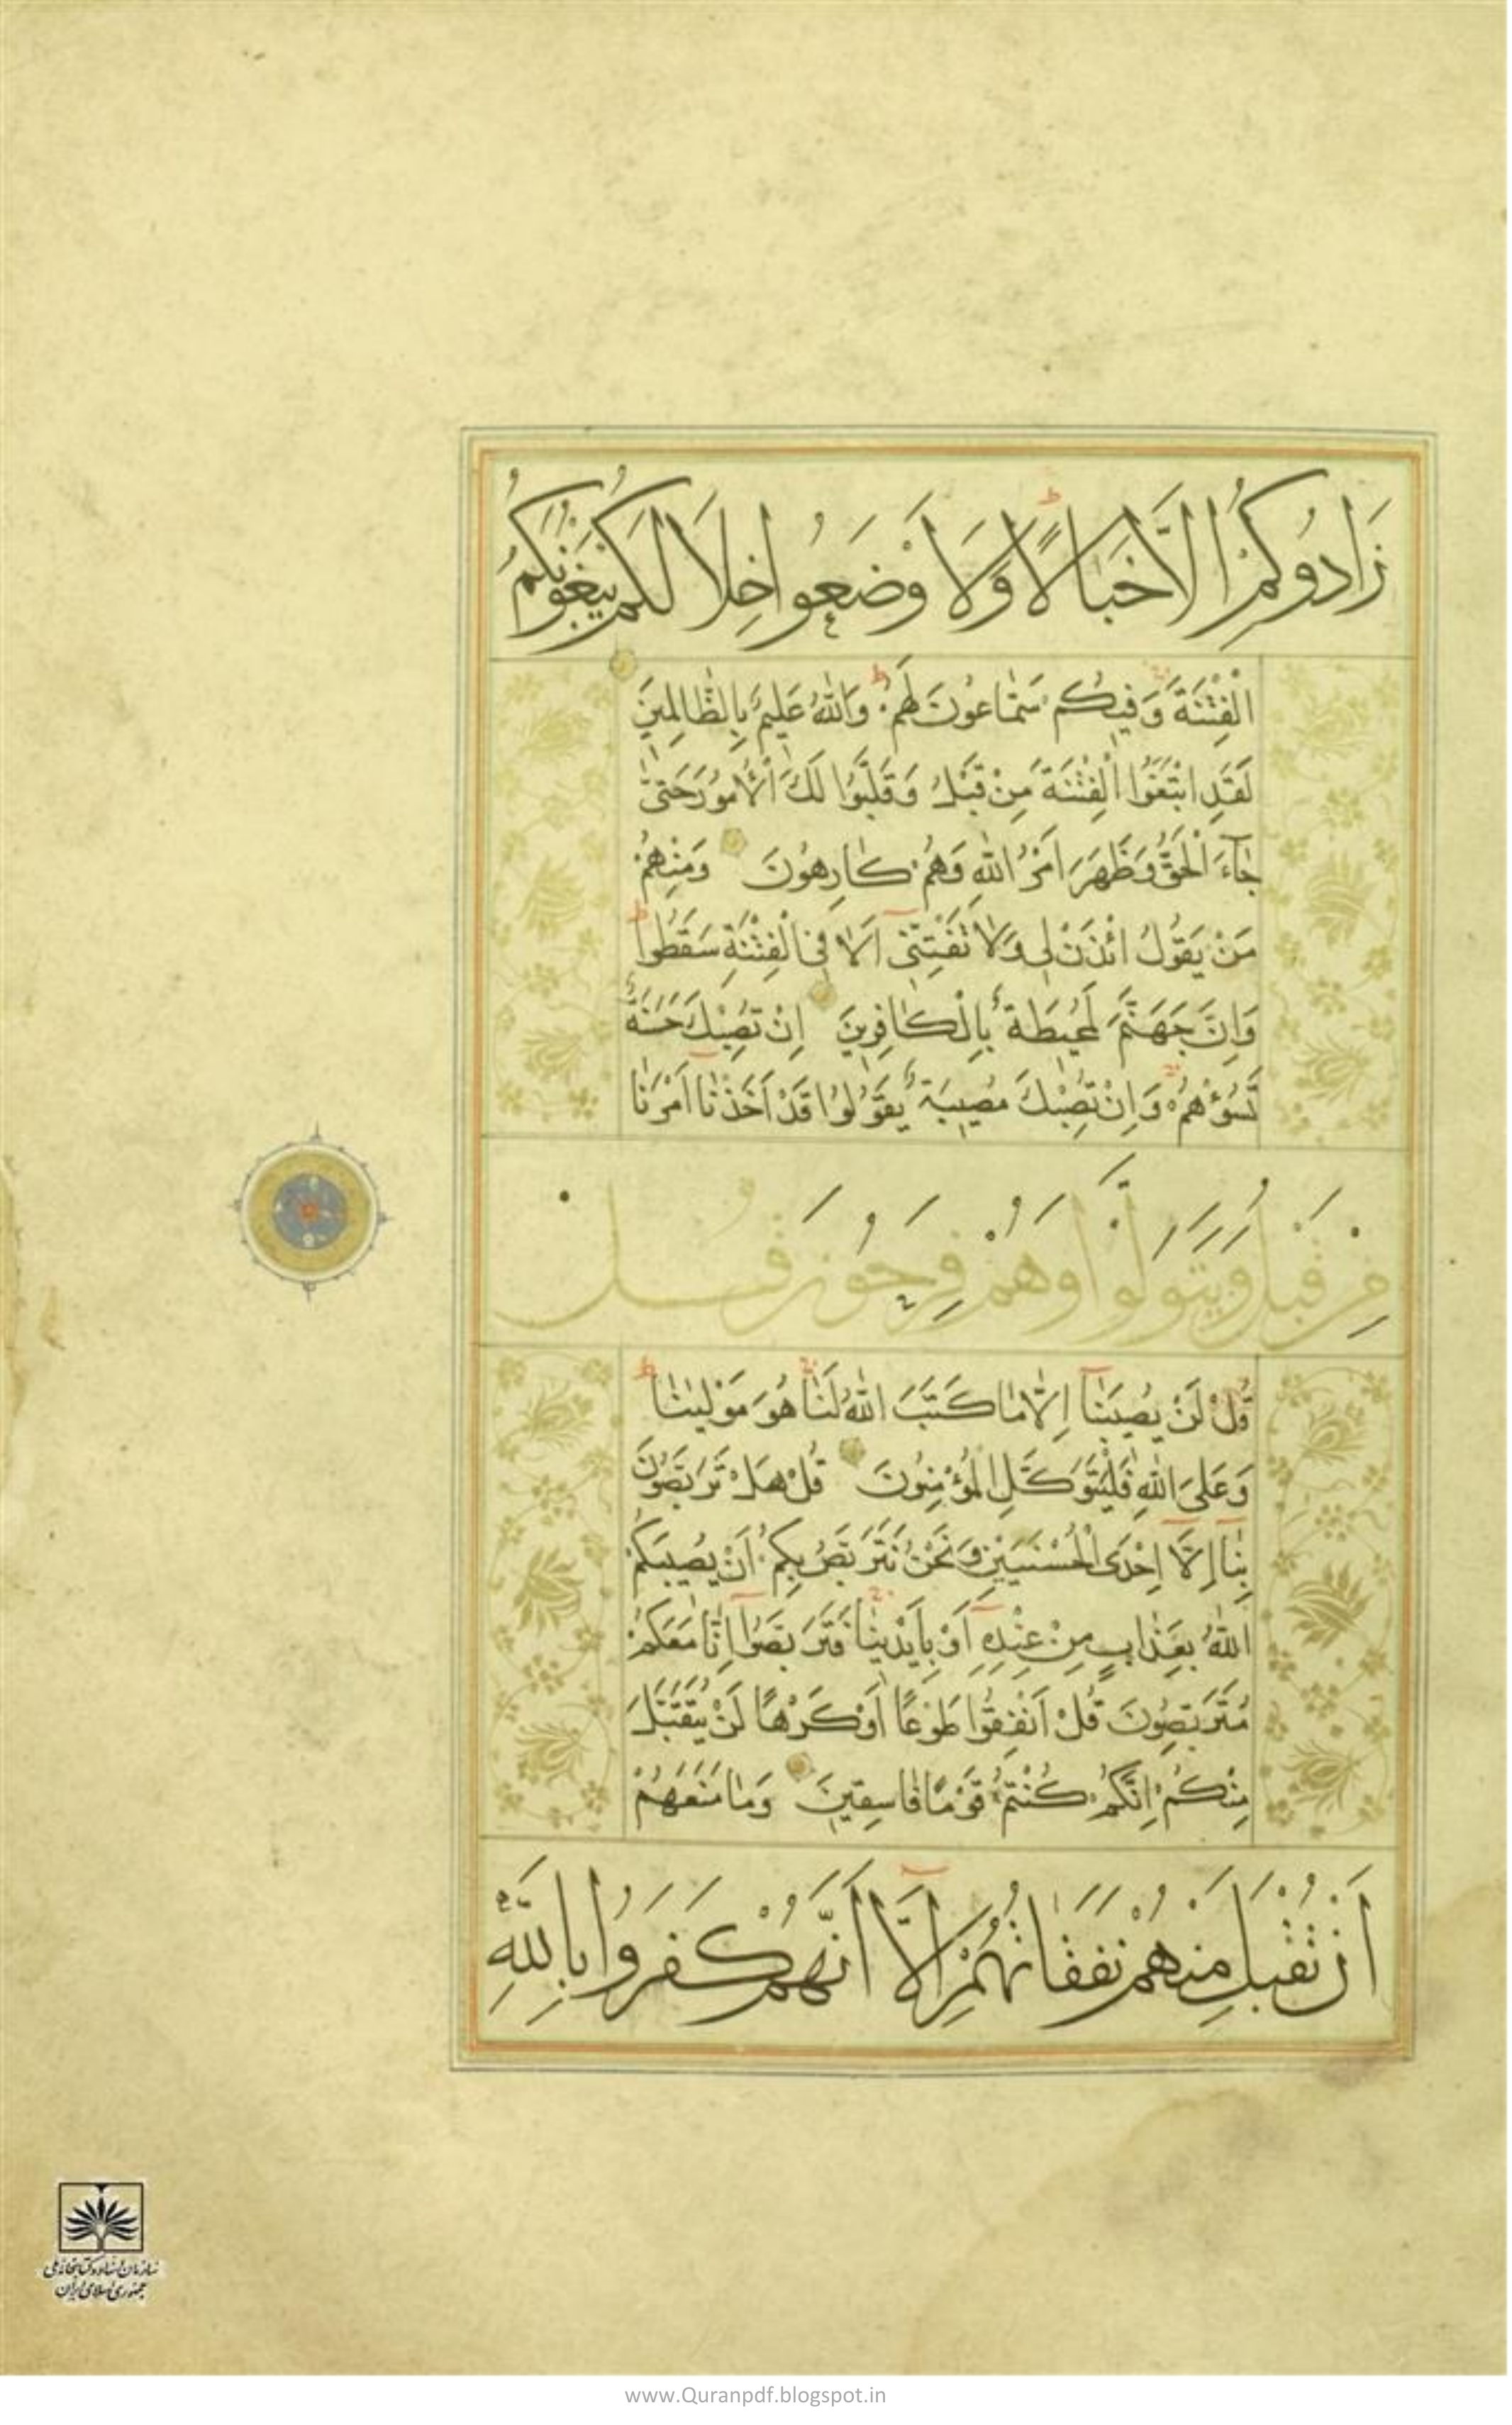 زَادُوكُمْ إِلَّا خَبَالًا وَلَا أَوْضَعُوا خِلَالَكُمْ يَبْغُونَكُمُ
الْفِتْنَةَ وَفِيكُمْ سَمَّاعُونَ لَهُمْ وَاللّٰهُ عَلِيمٌ بِالظَّالِمِينَ
لَقَدِ ابْتَغَوُا الْفِتْنَةَ مِنْ قَبْلُ وَقَلَّبُوا لَكَ الْأُمُورَ حَتّٰى
جَاءَ الْحَقُّ وَظَهَرَ اَمْرُ اللّٰهِ وَهُمْ كَارِهُونَ وَمِنْهُمْ
مَنْ يَقُولُ ائْذَنْ لِي وَلَا تَفْتِنِّي اَلَا فِي الْفِتْنَةِ سَقَطُوا
وَاِنَّ جَهَنَّمَ لَمُحِيطَةٌ بِالْكَافِرِينَ اِنْ تُصِبْكَ حَسَنَةٌ
تَسُؤْهُمْ وَاِنْ تُصِبْكَ مُصِيبَةٌ يَقُولُوا قَدْ اَخَذْنَا اَمْرَنَا
مِنْ قَبْلُ وَيَتَوَلَّوْا وَهُمْ فَرِحُونَ قُل
قُلْ لَنْ يُصِيبَنَا اِلَّا مَا كَتَبَ اللّٰهُ لَنَا هُوَ مَوْلٰينَا
وَعَلَى اللّٰهِ فَلْيَتَوَكَّلِ الْمُؤْمِنُونَ قُلْ هَلْ تَرَبَّصُونَ
بِنَا اِلَّا اِحْدَى الْحُسْنَيَيْنِ وَنَحْنُ نَتَرَبَّصُ بِكُمْ اَنْ يُصِيبَكُمُ
اللّٰهُ بِعَذَابٍ مِنْ عِنْدِهِ اَوْ بِاَيْدِينَا فَتَرَبَّصُوا اِنَّا مَعَكُمْ
مُتَرَبِّصُونَ قُلْ اَنْفِقُوا طَوْعًا اَوْ كَرْهًا لَنْ يُتَقَبَّلَ
مِنْكُمْ اِنَّكُمْ كُنْتُمْ قَوْمًا فَاسِقِينَ وَمَا مَنَعَهُمْ
اَنْ تُقْبَلَ مِنْهُمْ نَفَقَاتُهُمْ اِلَّا اَنَّهُمْ كَفَرُوا بِاللّٰهِ
سازمان اسناد و کتابخانه ملی
جمهوری اسلامی ایران
www.Quranpdf.blogspot.in